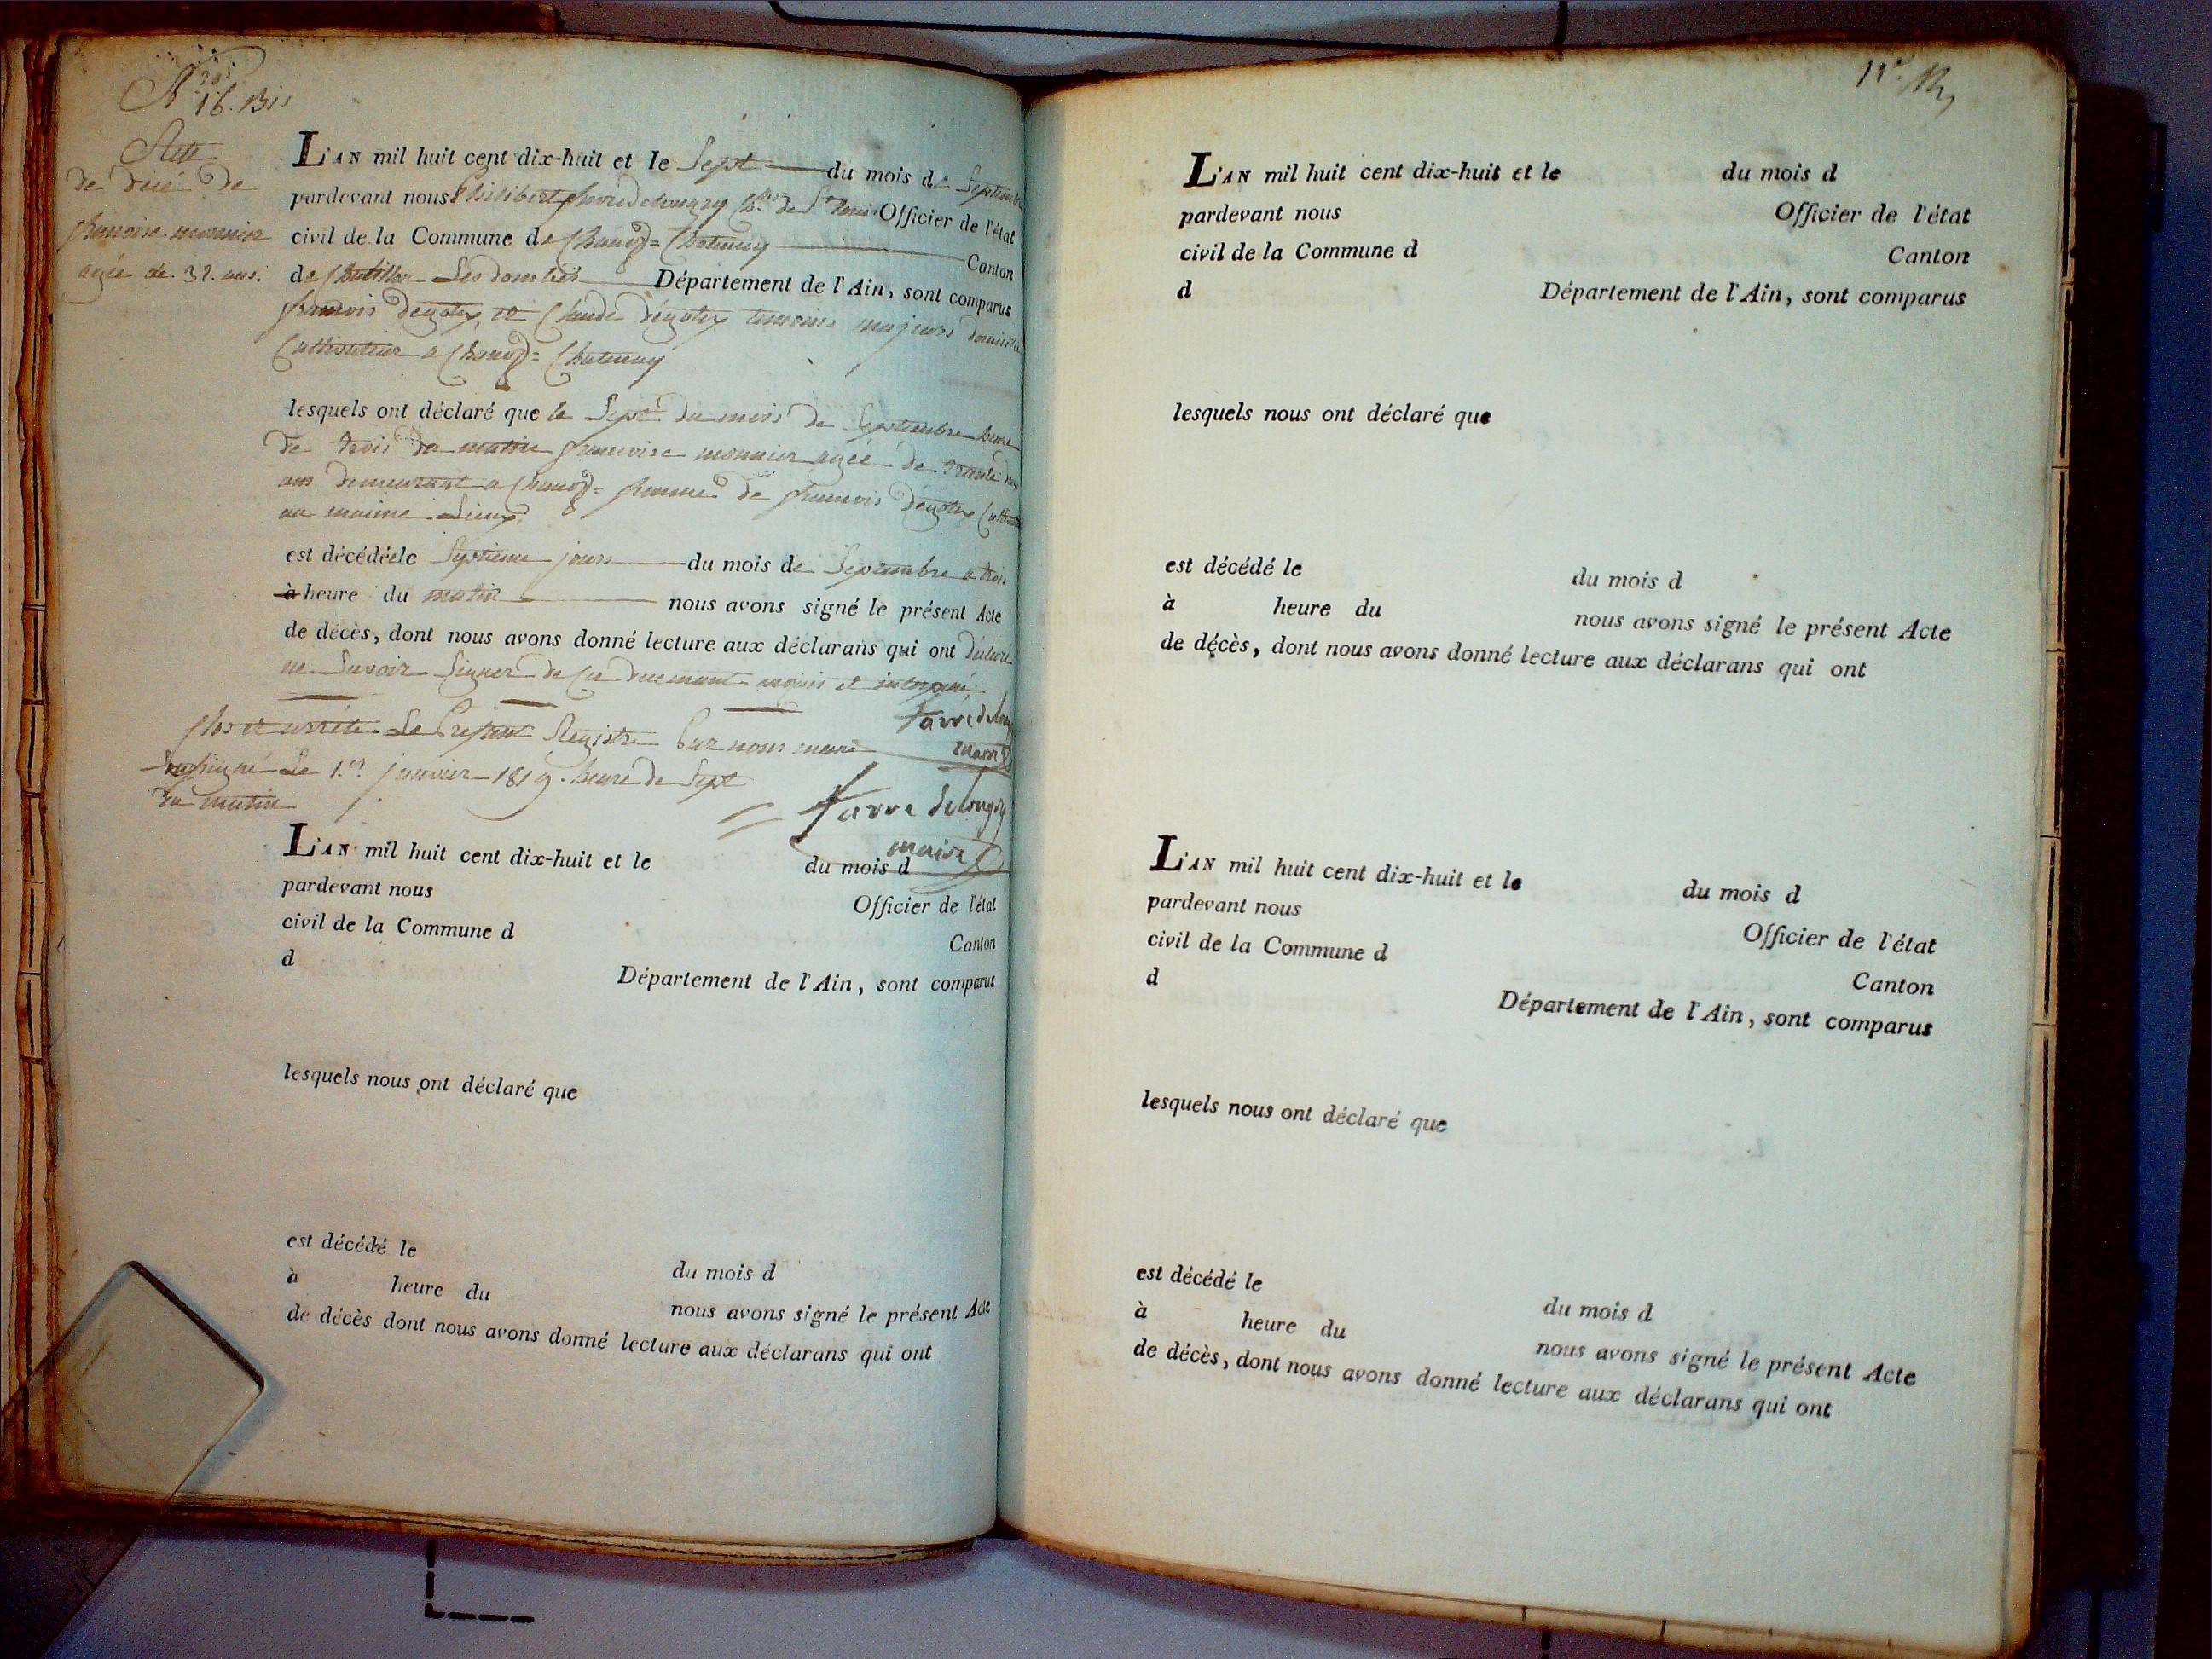 16. Bis
Acte
de décé de
francoise monnier
agée de 32. ans.
L'AN mil huit cent dix-huit et le Sept du mois de Septembre
pardevant nous Philibert favre de longry de St Officier de l'état
civil de la Commune de Chanoz=Chatenay Canton
de Chatillon Les dombes Département de l'Ain, sont comparus
francois et Claude temoins majeurs
Cultivateur a Chanoz=Chatenay
lesquels ont déclaré que le Sept du mois de Septembre heure
de trois du matin francoise monnier agée de trante
ans demeurant a Chanoz= femme de francois
au maime Lieux,
est décédéele Septieme jours du mois de Septembre a trois
à heure du matin nous avons signé le présent Acte
de décès, dont nous avons donné lecture aux déclarans qui ont déclaré
ne Savoir Signer de Ce
maire
Clos et arrété Le Present Registre Par nous maire
Le 1.er janvier 1819. heure de Sept
du matin
favre de longry
maire
L'AN mil huit cent dix-huit et le du mois d
pardevant nous Officier de l'état
civil de la Commune d Canton
d Département de l'Ain, sont comparus
lesquels nous ont déclaré que
est décédé le du mois d
à heure du nous avons signé le présent Acte
de décès dont nous avons donné lecture aux déclarans qui ont
L'AN mil huit cent dix-huit et le du mois d
pardevant nous Officier de l'état
civil de la Commune d Canton
d Département de l'Ain, sont comparus
lesquels nous ont déclaré que
est décédé le du mois d
à heure du nous avons signé le présent Acte
de décès, dont nous avons donné lecture aux déclarans qui ont
L'AN mil huit cent dix-huit et le du mois d
pardevant nous Officier de l'état
civil de la Commune d Canton
d Département de l'Ain, sont comparus
lesquels nous ont déclaré que
est décédé le du mois d
à heure du nous avons signé le présent Acte
de décès, dont nous avons donné lecture aux déclarans qui ont